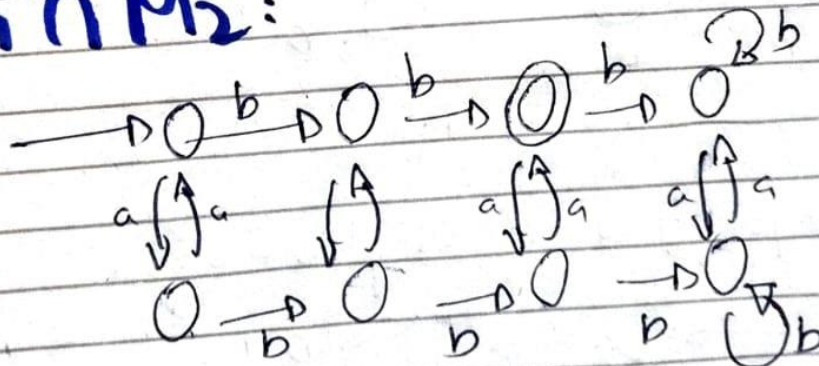 ∩ M₂:
b b b b
a a a a a a
b b b b